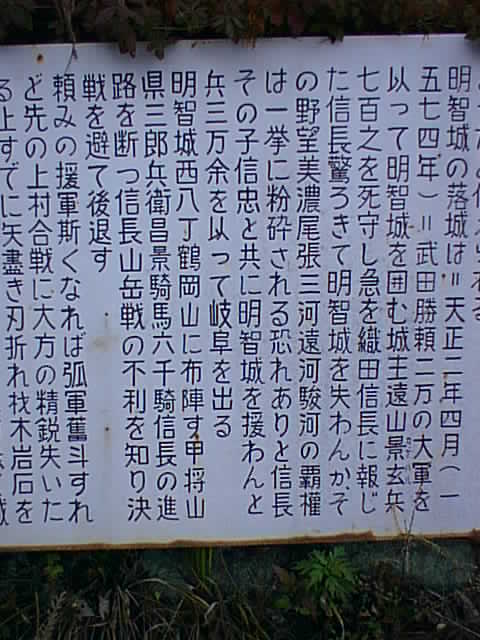 明智城の落城は＝天正二年四月（一
五七四年）＝武田勝頼二万の大軍を
以って明智城を囲む城主遠山景玄兵
七百之を死守し急を織田信長に報じ
た信長驚ろきて明智城を失わんか、ぞ
の野望美濃尾張三河遠河駿河の覇權
は一挙に粉砕される恐れありと信長
その子信忠と共に明智城を援わんと
兵三万余を以って岐阜を出る
明智城西八丁鶴岡山に布陣す甲将山
県三郎兵衛昌景騎馬六千騎信長の進
路を断つ信長山岳戦の不利を知り決
戦を避て後退す
頼みの援軍斯くなれば弧軍奮斗すれ
ど先の上村合戦に大方の精鋭失いた
る上すでに矢盡き刃折れ伐木岩石を